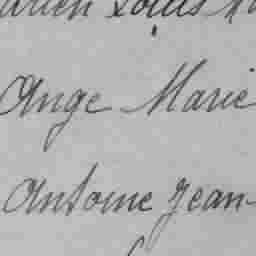 Louis
Ange Marie
Antoine Jean-